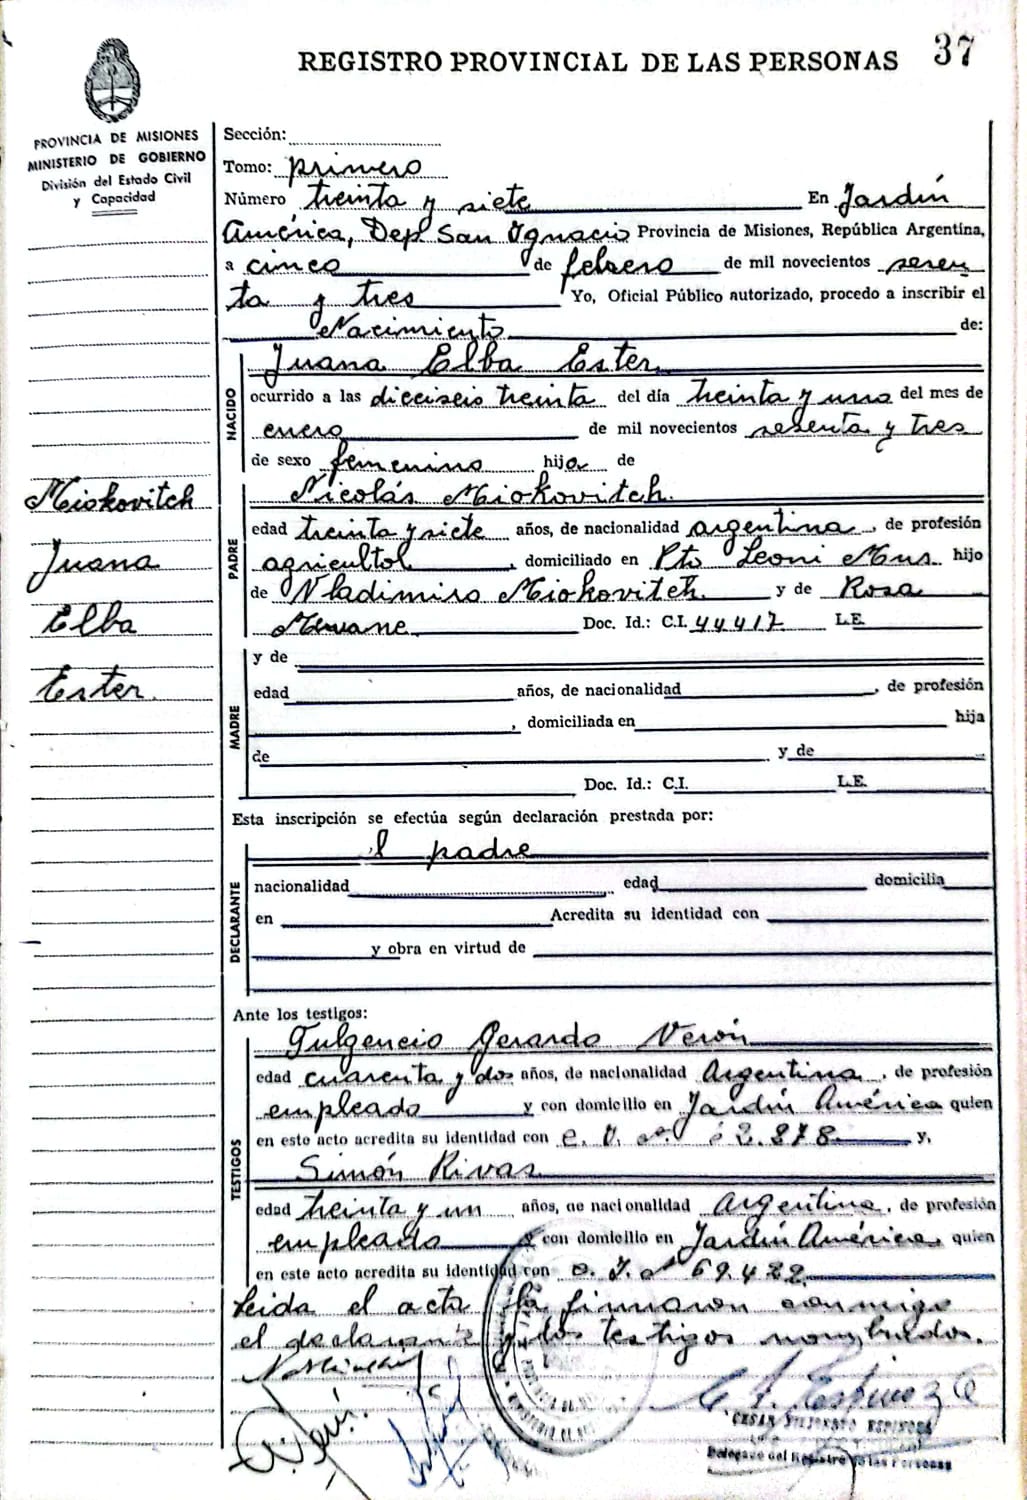 37
REGISTRO PROVINCIAL DE LAS PERSONAS
PROVINCIA DE MISIONES
MINISTERIO DE GOBIERNO
División del Estado Civil
y Capacidad
Sección:
Tomo: primero
Número treinta y siete En Jardín
América, Dep. San Ignacio Provincia de Misiones, República Argentina,
a cinco de febrero de mil novecientos seten
ta y tres Yo, Oficial Público autorizado, procedo a inscribir el
Nacimiento de:
Juana Elba Ester
NACIDO
ocurrido a las dieciseis treinta del día treinta y uno del mes de
enero de mil novecientos setenta y tres
de sexo femenino hija de
Miokovitch
Juana
Elba
Ester
Nicolás Miokovitch
PADRE
edad treinta y siete años, de nacionalidad argentina, de profesión
agricultor, domiciliado en Pto Leoni Mns. hijo
de Vladimiro Miokovitch y de Rosa
Doc. Id.: C.I. 44417 L.E.
y de
MADRE
edad años, de nacionalidad, de profesión
, domiciliada en hija
de y de
Doc. Id.: C.I. L.E.
Esta inscripción se efectúa según declaración prestada por:
el padre
DECLARANTE
nacionalidad edad domicilia
en Acredita su identidad con
y obra en virtud de
Ante los testigos:
Fulgencio Gerardo Verón
TESTIGOS
edad cuarenta y dos años, de nacionalidad Argentina, de profesión
empleado y con domicilio en Jardín América quien
en este acto acredita su identidad con y,
Simón Rivas
edad treinta y un años, de nacionalidad Argentina, de profesión
empleado y con domicilio en Jardín América, quien
en este acto acredita su identidad con C. I. nº 69.422
Leida el acta la firmaron conmigo
el declarante y los testigos nombrados.
C. A. Espinoza
CESAR ESPINOSA
Delegado del Registro de las Personas